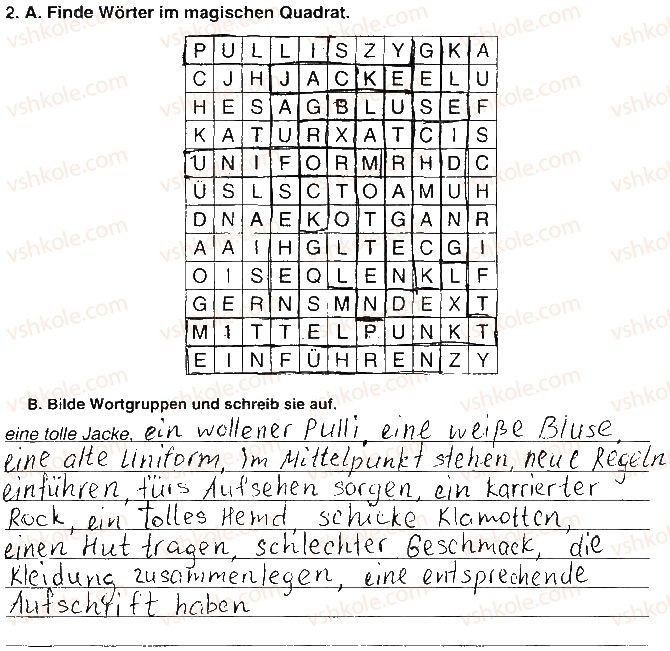 2. A. Finde Wörter im magischen Quadrat.
P U L L I S Z Y G K A
C J H J A C K E E L U
H E S A G B L U S E F
K A T U R X A T C I S
U N I F O R M R H D C
Ü S L S C T O A M U H
D N A E K O T G A N R
A A I H G L T E C G I
O I S E Q L E N K L F
G E R N S M N D E X T
M I T T E L P U N K T
E I N F Ü H R E N Z Y
B. Bilde Wortgruppen und schreib sie auf.
eine tolle Jacke, ein wollener Pulli, eine weiße Bluse,
eine alte Uniform, im Mittelpunkt stehen, neue Regeln
einführen, fürs Aufsehen sorgen, ein karrierter
Rock, ein tolles Hemd, schicke Klamotten,
einen Hut tragen, schlechter Geschmack, die
Kleidung zusammenlegen, eine entsprechende
Aufschrift haben
vshkole.com